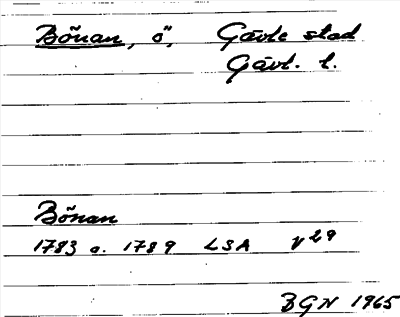 Bönan, ö, Gävle stad
Gävl. l.
Bönan
1783 o. 1789 LSA v29
BGN 1965